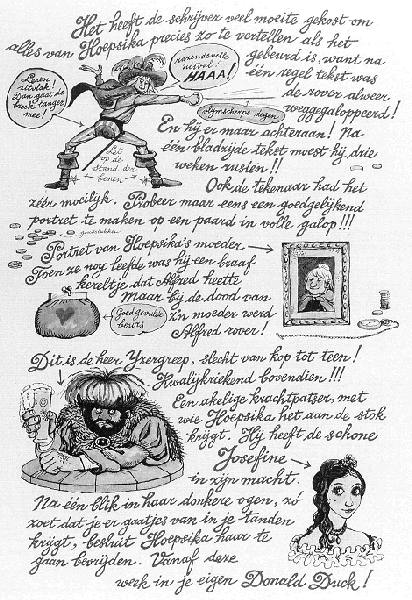 Het heeft de schrijver veel moeite gekost om
alles van Hoepsika precies zo te vertellen als het
gebeurd is, want na
één regel tekst was
de rover alweer
weggegaloppeerd!
HAAA!
degen
Let
op de
Stand der
benen
En hij er maar achteraan! Na
één bladzijde tekst moest hij drie
weken rusten!!
Ook de tekenaar had het
zéér moeilijk. Probeer maar eens een goedgelijkend
portret te maken op een paard in volle galop!!!
goudstukken
Portret van Hoepsika's moeder
Toen ze nog leefde was hij een braaf
kereltje dat Alfred heette
Maar bij de dood van
z'n moeder werd
Alfred rover!
Goed gevulde
beurs
Dit is de heer Yzergreep, slecht van kop tot teen!
Kwalijkriekend bovendien!!!
Een akelige krachtpatser, met
wie Hoepsika het aan de stok
krijgt. Hij heeft de schone
Josefine
in zijn macht.
Na één blik in haar donkere ogen, zó
zoet dat je er gaatjes van in je tanden
krijgt, besluit Hoepsika haar te
gaan bevrijden. Vanaf deze
week in je eigen Donald Duck!